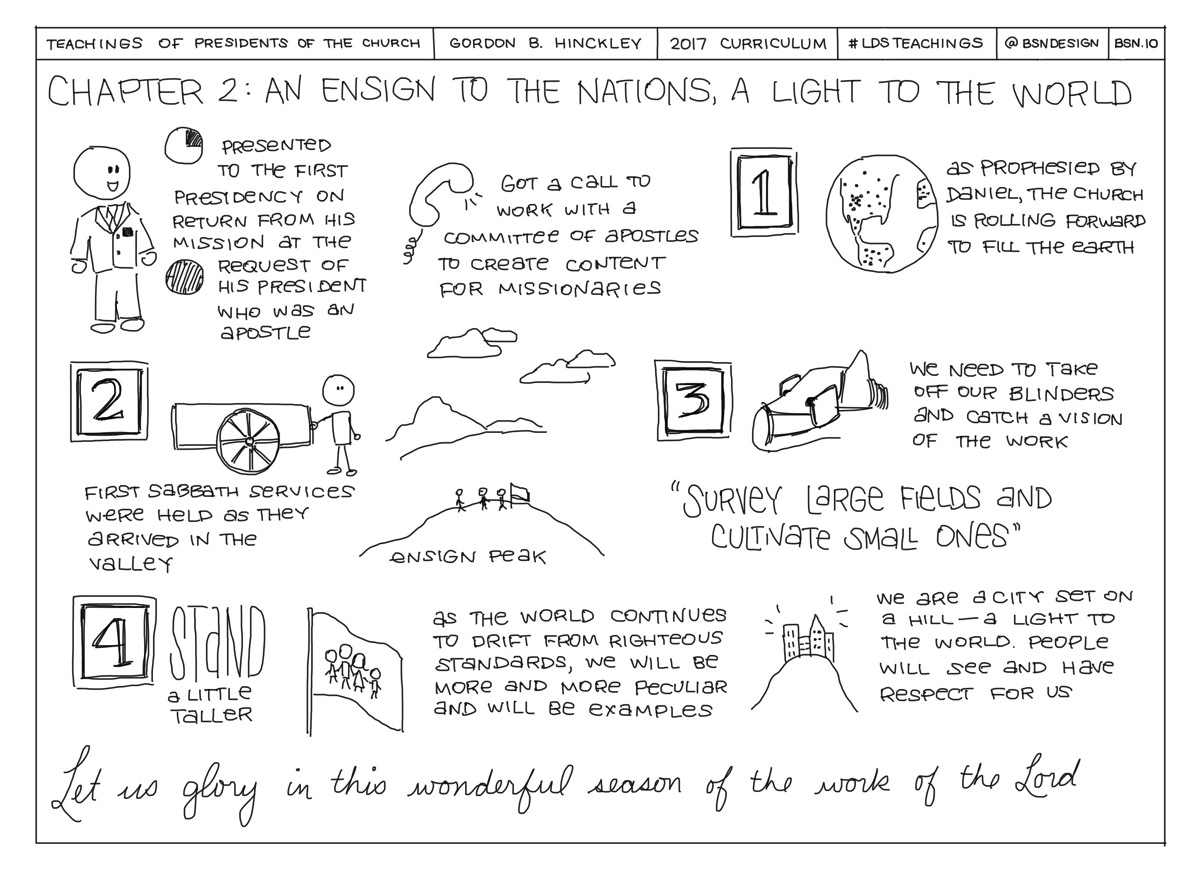 TEACHINGS OF PRESIDENTS OF THE CHURCH
GORDON B. HINCKLEY
2017 CURRICULUM
#LDSTEACHINGS
@BSNDESIGN
BSN.IO
CHAPTER 2: AN ENSIGN TO THE NATIONS, A LIGHT TO THE WORLD
PRESENTED
TO THE FIRST
PRESIDENCY ON
RETURN FROM HIS
MISSION AT THE
REQUEST OF
HIS PRESIDENT
WHO WAS AN
APOSTLE
GOT A CALL TO
WORK WITH A
COMMITTEE OF APOSTLES
TO CREATE CONTENT
FOR MISSIONARIES
1
AS PROPHESIED BY
DANIEL, THE CHURCH
IS ROLLING FORWARD
TO FILL THE EARTH
2
FIRST SABBATH SERVICES
WERE HELD AS THEY
ARRIVED IN THE
VALLEY
ENSIGN PEAK
3
WE NEED TO TAKE
OFF OUR BLINDERS
AND CATCH A VISION
OF THE WORK
"SURVEY LARGE FIELDS AND
CULTIVATE SMALL ONES"
4
STAND
A LITTLE
TALLER
AS THE WORLD CONTINUES
TO DRIFT FROM RIGHTEOUS
STANDARDS, WE WILL BE
MORE AND MORE PECULIAR
AND WILL BE EXAMPLES
WE ARE A CITY SET ON
A HILL—A LIGHT TO
THE WORLD. PEOPLE
WILL SEE AND HAVE
RESPECT FOR US
Let us glory in this wonderful season of the work of the Lord